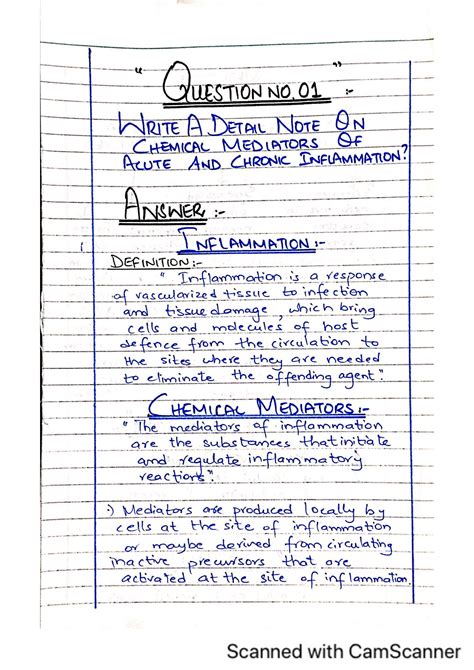 " QUESTION NO. 01 " :-
WRITE A DETAIL NOTE ON
CHEMICAL MEDIATORS OF
ACUTE AND CHRONIC INFLAMMATION?
ANSWER :-
INFLAMMATION :-
DEFINITION :-
" Inflammation is a response
of vascularized tissue to infection
and tissue damage, which bring
cells and molecules of host
defence from the circulation to
the sites where they are needed
to eliminate the offending agent."
CHEMICAL MEDIATORS :-
" The mediators of inflammation
are the substances that initiate
and regulate inflammatory
reactions".
:) Mediators are produced locally by
cells at the site of inflammation
or maybe derived from circulating
inactive precursors that are
activated at the site of inflammation.
Scanned with CamScanner